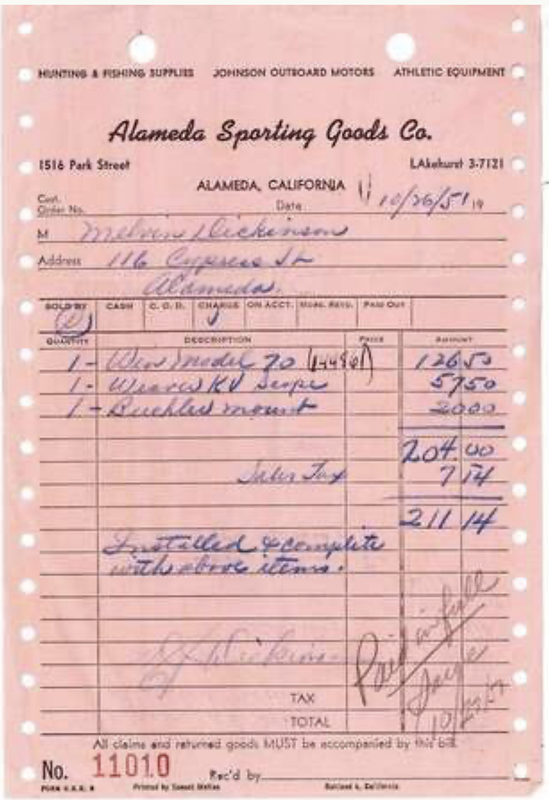 HUNTING & FISHING SUPPLIES JOHNSON OUTBOARD MOTORS ATHLETIC EQUIPMENT
Alameda Sporting Goods Co.
1516 Park Street LAkehurst 3-7121
ALAMEDA, CALIFORNIA
Cust. Order No. Date 10/26/51 19
M Melvin Dickinson
Address 116 Cypress St
Alameda.
SOLD BY CASH C. O. D. CHARGE ON ACCT. MDSE. RETD. PAID OUT
QUANTITY DESCRIPTION PRICE AMOUNT
1 - Win Model 70 126 50
1 - Weaver KV Scope 57 50
1 - Buehler mount 20 00
204.00
Sales Tax 7 14
211 14
Installed & complete
with above items.
Paid in full
TAX
TOTAL
All claims and returned goods MUST be accompanied by this bill.
No. 11010 Rec'd by